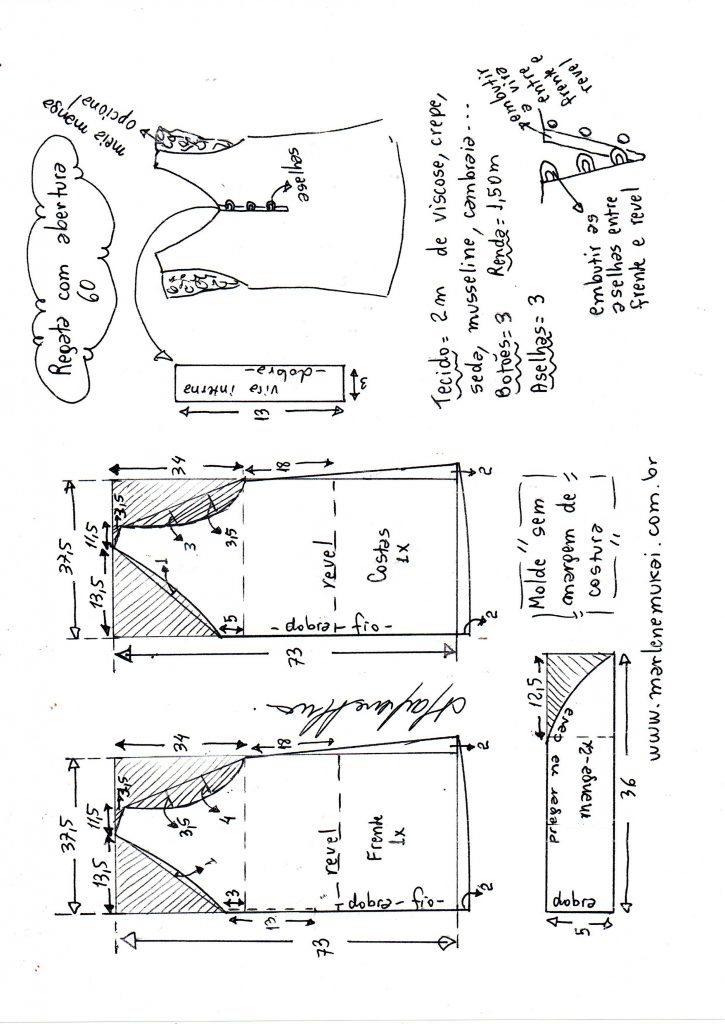 Regata com abertura
60
meia manga
opcional
aselhas
vira interna
-dobra-
13
3
Tecido= 2m de viscose, crepe,
seda, musseline, cambraia...
Botões= 3 Renda= 1,50m
Aselhas= 3
embutir
a vira
entre
frente e
revel
embutir as
aselhas entre
frente e revel
37,5
13,5
11,5
3,5
34
18
1
3
3,5
5
73
- revel -
Costas
1x
dobra - fio -
2
2
37,5
13,5
11,5
3,5
34
18
1
3,5
4
3
13
73
- revel -
Frente
1x
dobra - fio -
2
2
"Molde sem
margem de
costura"
12,5
pregar na cava
manga-2x
dobra
5
36
www.marlenemukai.com.br